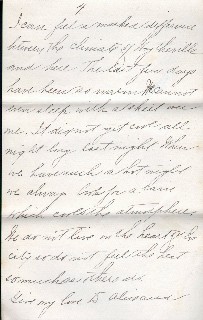 I can feel a marked difference
between the climate of Hughesville
and here. The last few days
have been so warm
even sleep with a sheet over
me. It did not get cool all
night long last night. When
we have such a hot night
we always look for a
which cools the atmosphere
We do not live in the heart of the
city so do not feel the heat
so much as others do.
Give my love to